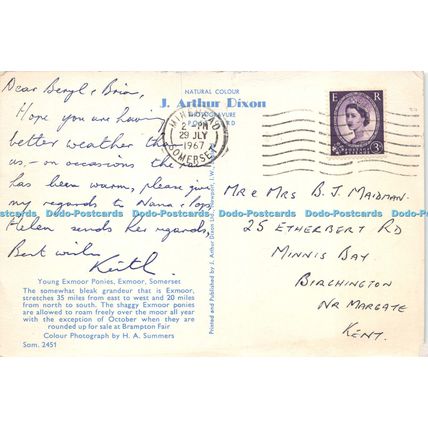 Dear Beryl & Brian,
Hope you are having
better weather than
us, - on occasions the rain
has been warm, please give
my regards to Nana & Pops
Helen sends her regards,
Best wishes
Keith.
Young Exmoor Ponies, Exmoor, Somerset
The somewhat bleak grandeur that is Exmoor,
stretches 35 miles from east to west and 20 miles
from north to south. The shaggy Exmoor ponies
are allowed to roam freely over the moor all year
with the exception of October when they are
rounded up for sale at Brampton Fair
Colour Photograph by H. A. Summers
Som. 2451
NATURAL COLOUR
J. Arthur Dixon
PHOTOGRAVURE
POSTCARD
MINEHEAD
2 - PM
29 JLY
1967
SOMERSET
Printed and Published by J. Arthur Dixon Ltd., Newport, I.W.
E R
3D
MR & MRS B. J. MAIDMAN.
25 ETHERBERT RD
MINNIS BAY
BIRCHINGTON
NR MARGATE
KENT.
Dodo-Postcards Dodo-Postcards Dodo-Postcards Dodo-Postcards